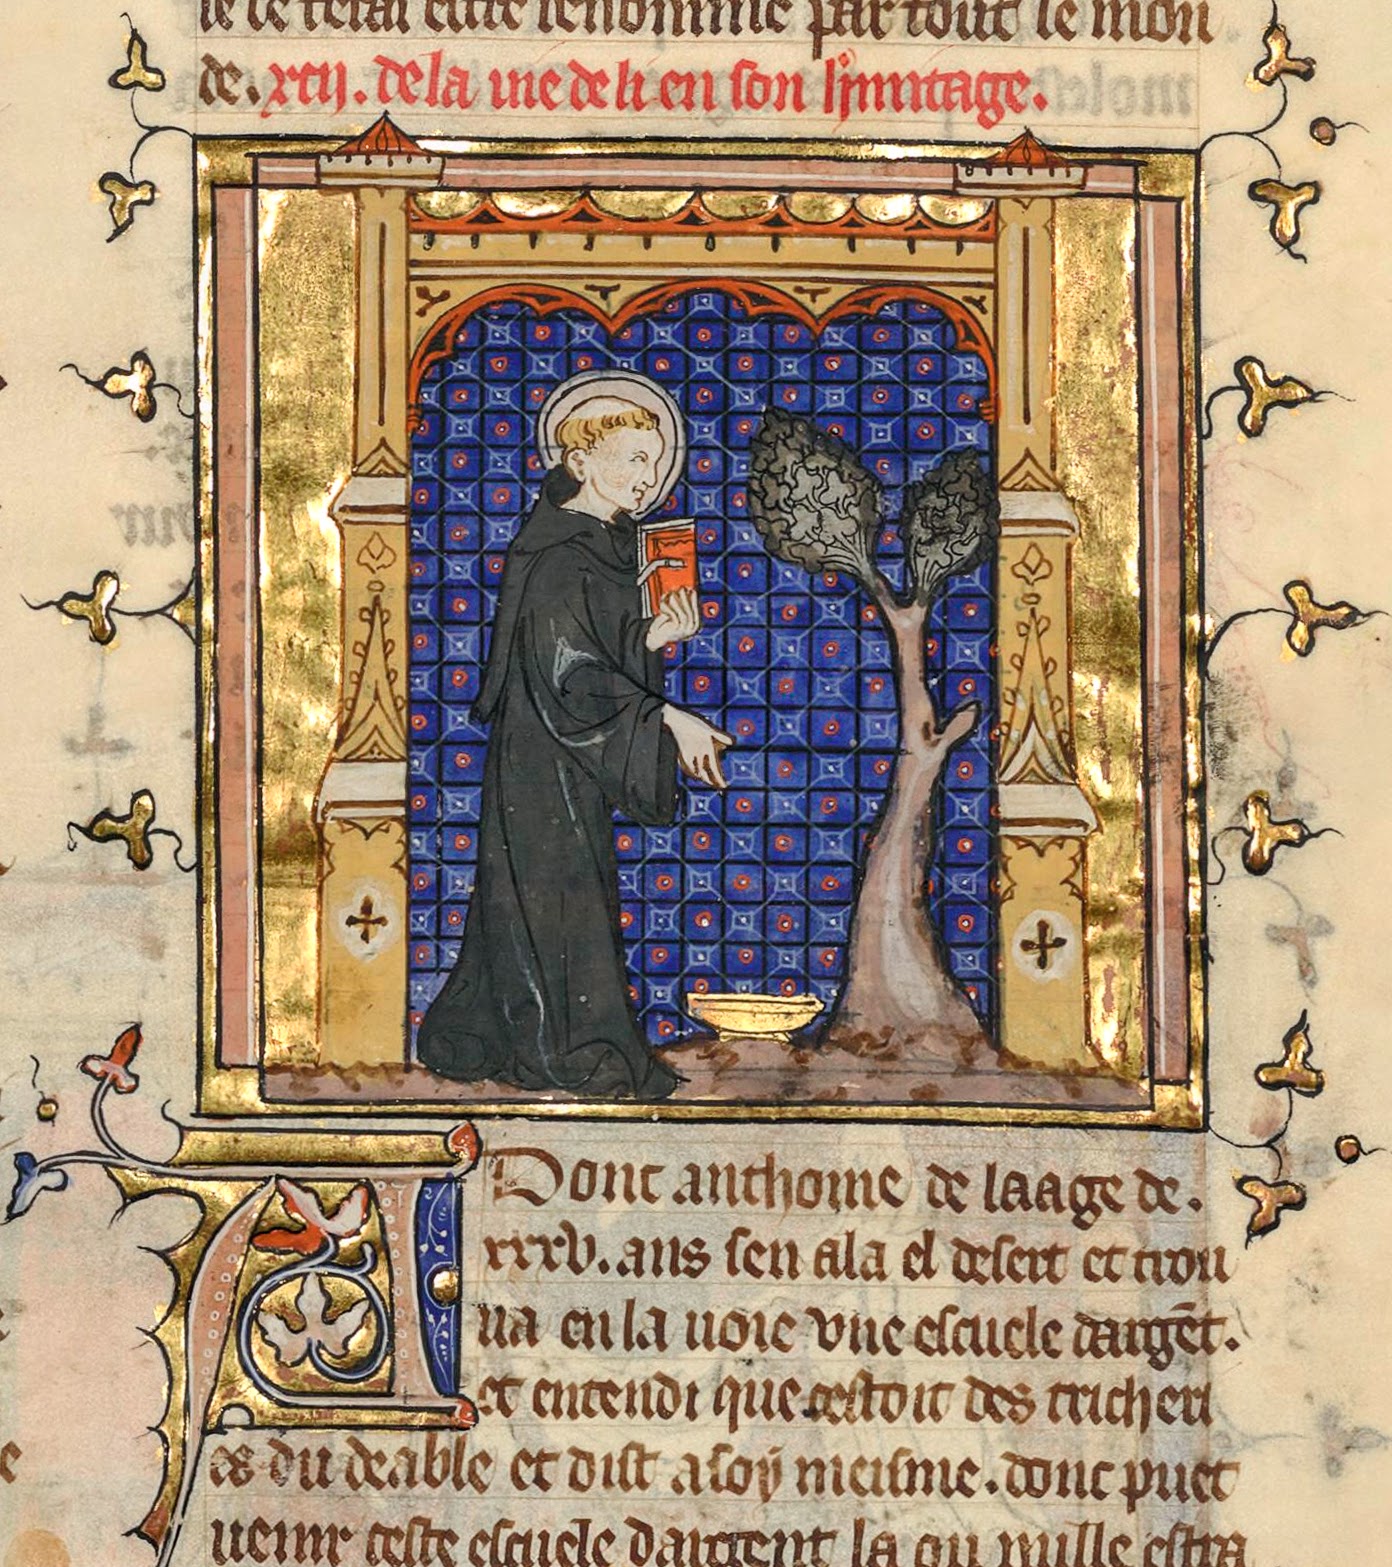 le le ferai estre renomme par tout le mon
de. xcij. de la uie de li en son hermitage.
A Donc anthoine de laage de.
xxxv. ans sen ala el desert et trou
ua en la uoie vne escuele dargēt.
et entendi que cestoit des tricheri
es du deable et dist a soy meisme. donc puet
uenir ceste escuele dargent la ou nulle estra